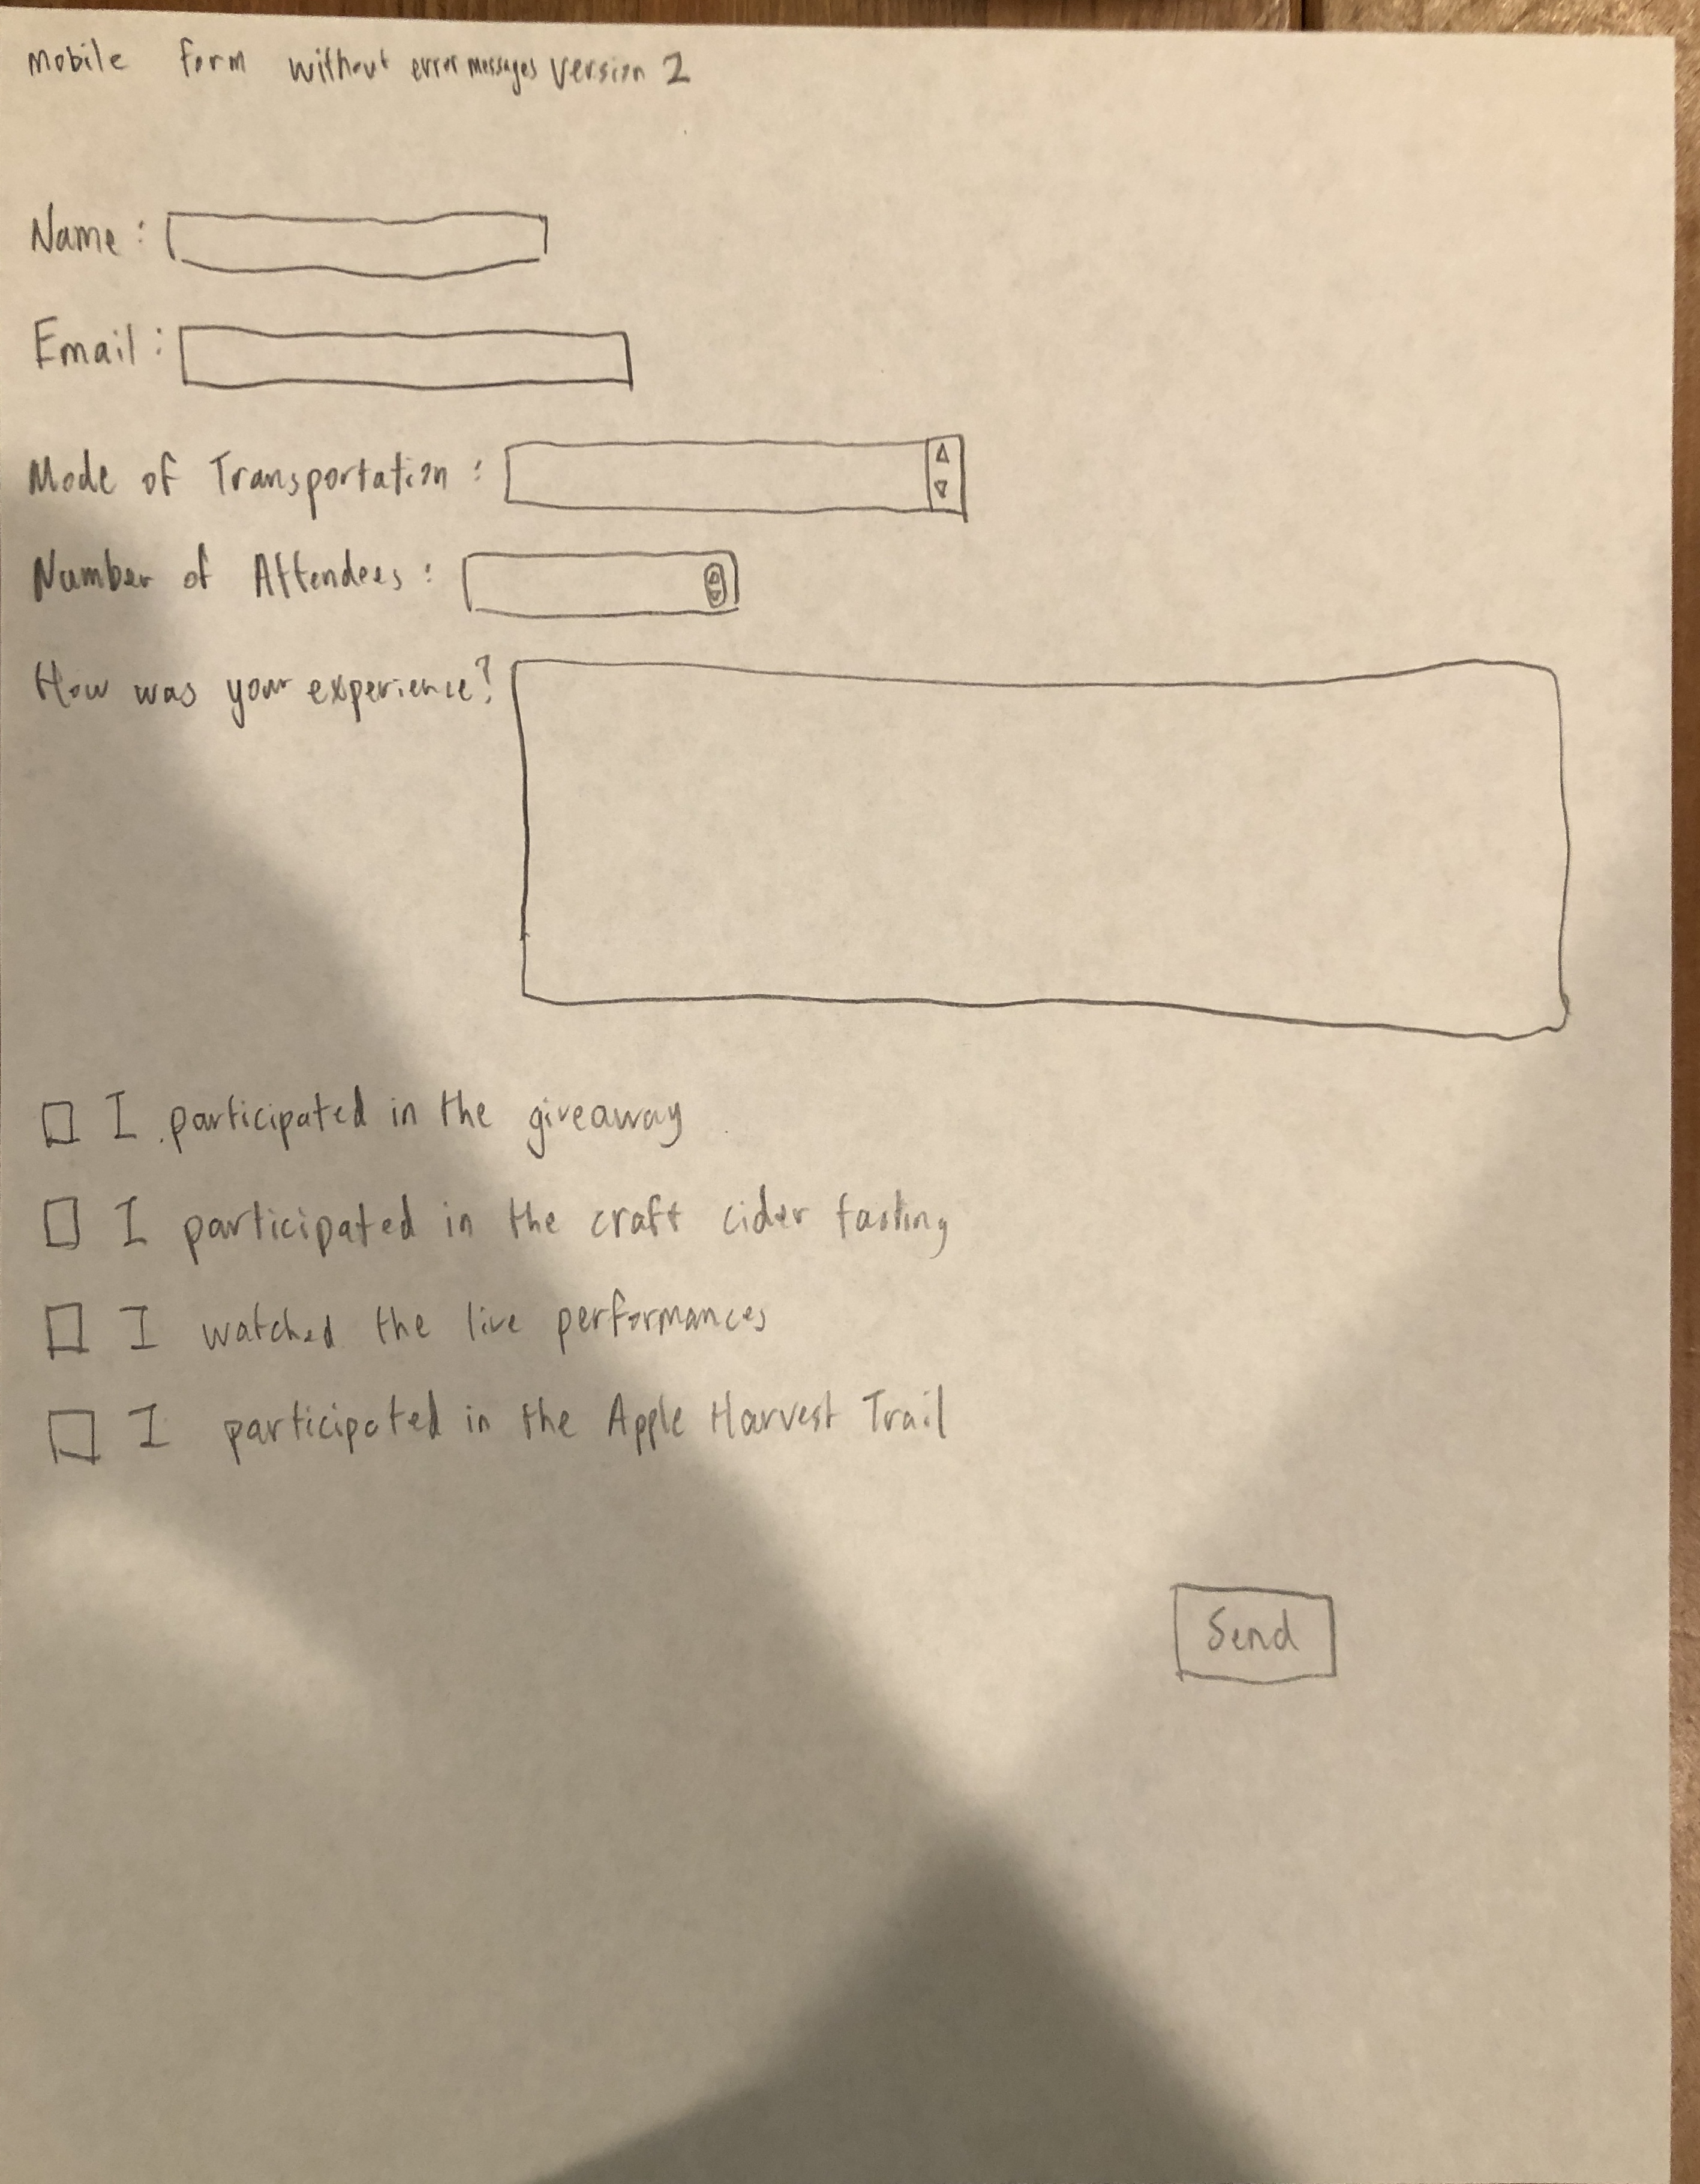 Mobile form without error messages version 2
Name :
Email :
Mode of Transportation :
Number of Attendees :
How was your experience?
I participated in the giveaway
I participated in the craft cider tasting
I watched the live performances
I participated in the Apple Harvest Trail
Send